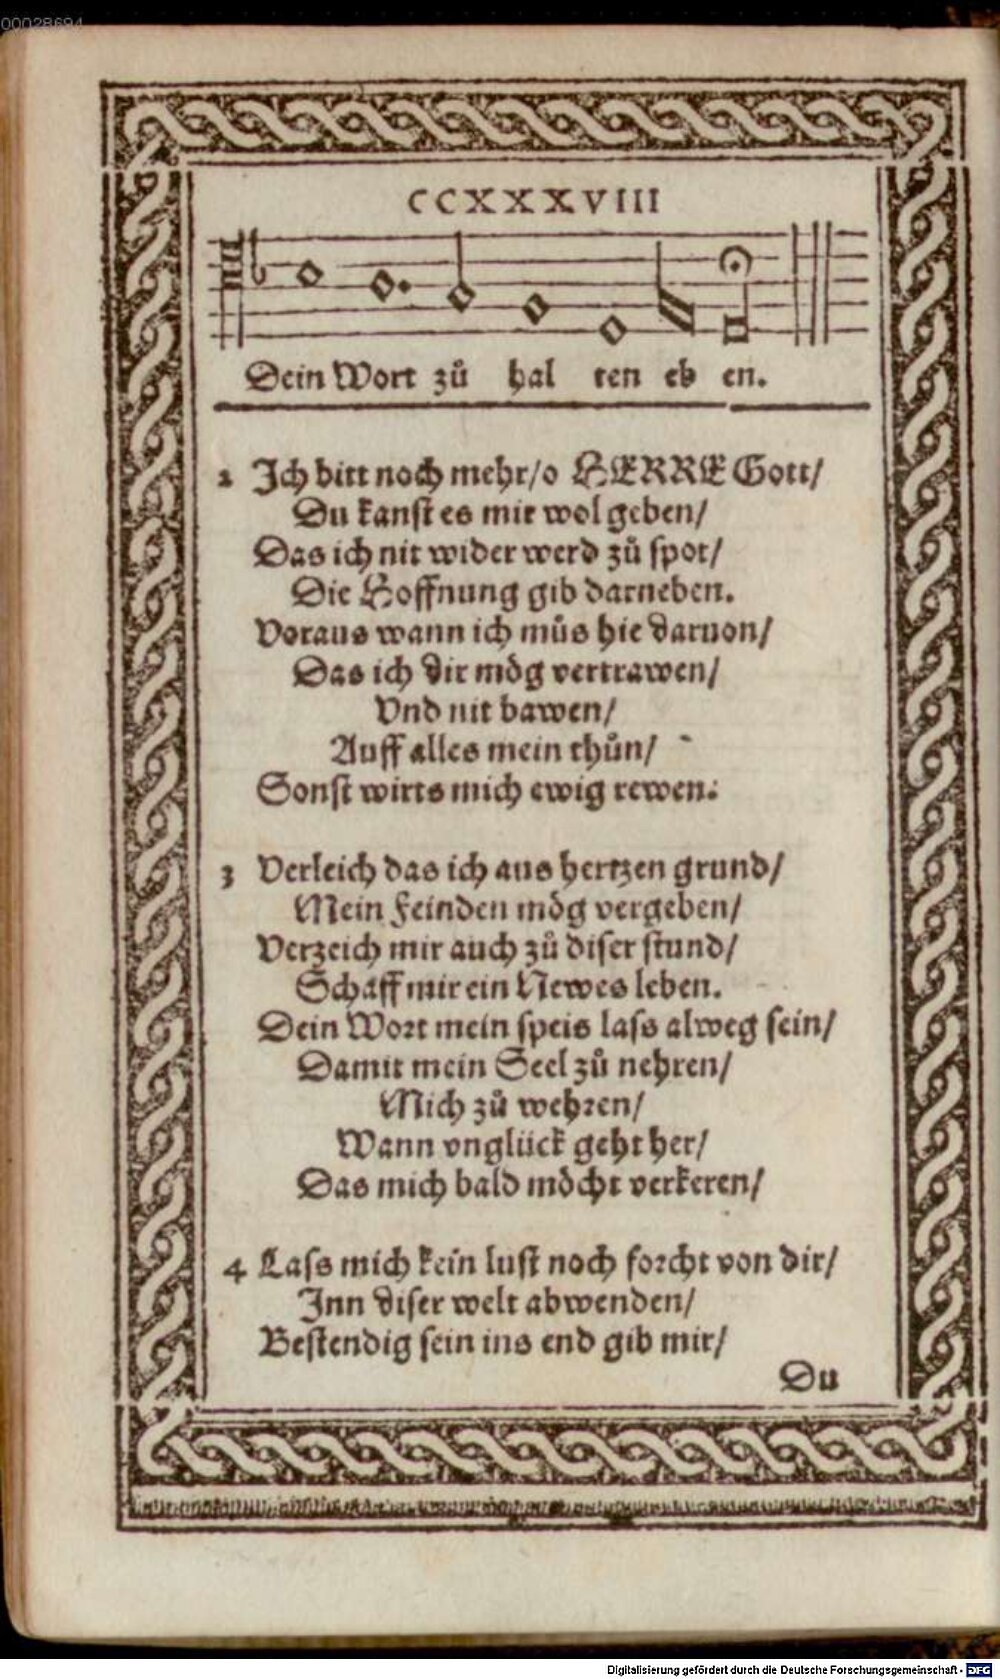 00028694
CCXXXVIII
Dein Wort zů hal ten eb en.
2 Ich bitt noch mehr/o HERRE Gott/
Du kanst es mir wol geben/
Das ich nit wider werd zů spot/
Die Hoffnung gib darneben.
Voraus wann ich můs hie daruon/
Das ich dir mög vertrawen/
Vnd nit bawen/
Auff alles mein thůn/
Sonst wirts mich ewig rewen:
3 Verleich das ich aus hertzen grund/
Mein Feinden mög vergeben/
Verzeich mir auch zů diser stund/
Schaff mir ein Newes leben.
Dein Wort mein speis lass alweg sein/
Damit mein Seel zů nehren/
Mich zů wehren/
Wann vnglück geht her/
Das mich bald möcht verkeren/
4 Lass mich kein lust noch forcht von dir/
Inn diser welt abwenden/
Bestendig sein ins end gib mir/
Du
Digitalisierung gefördert durch die Deutsche Forschungsgemeinschaft - DFG